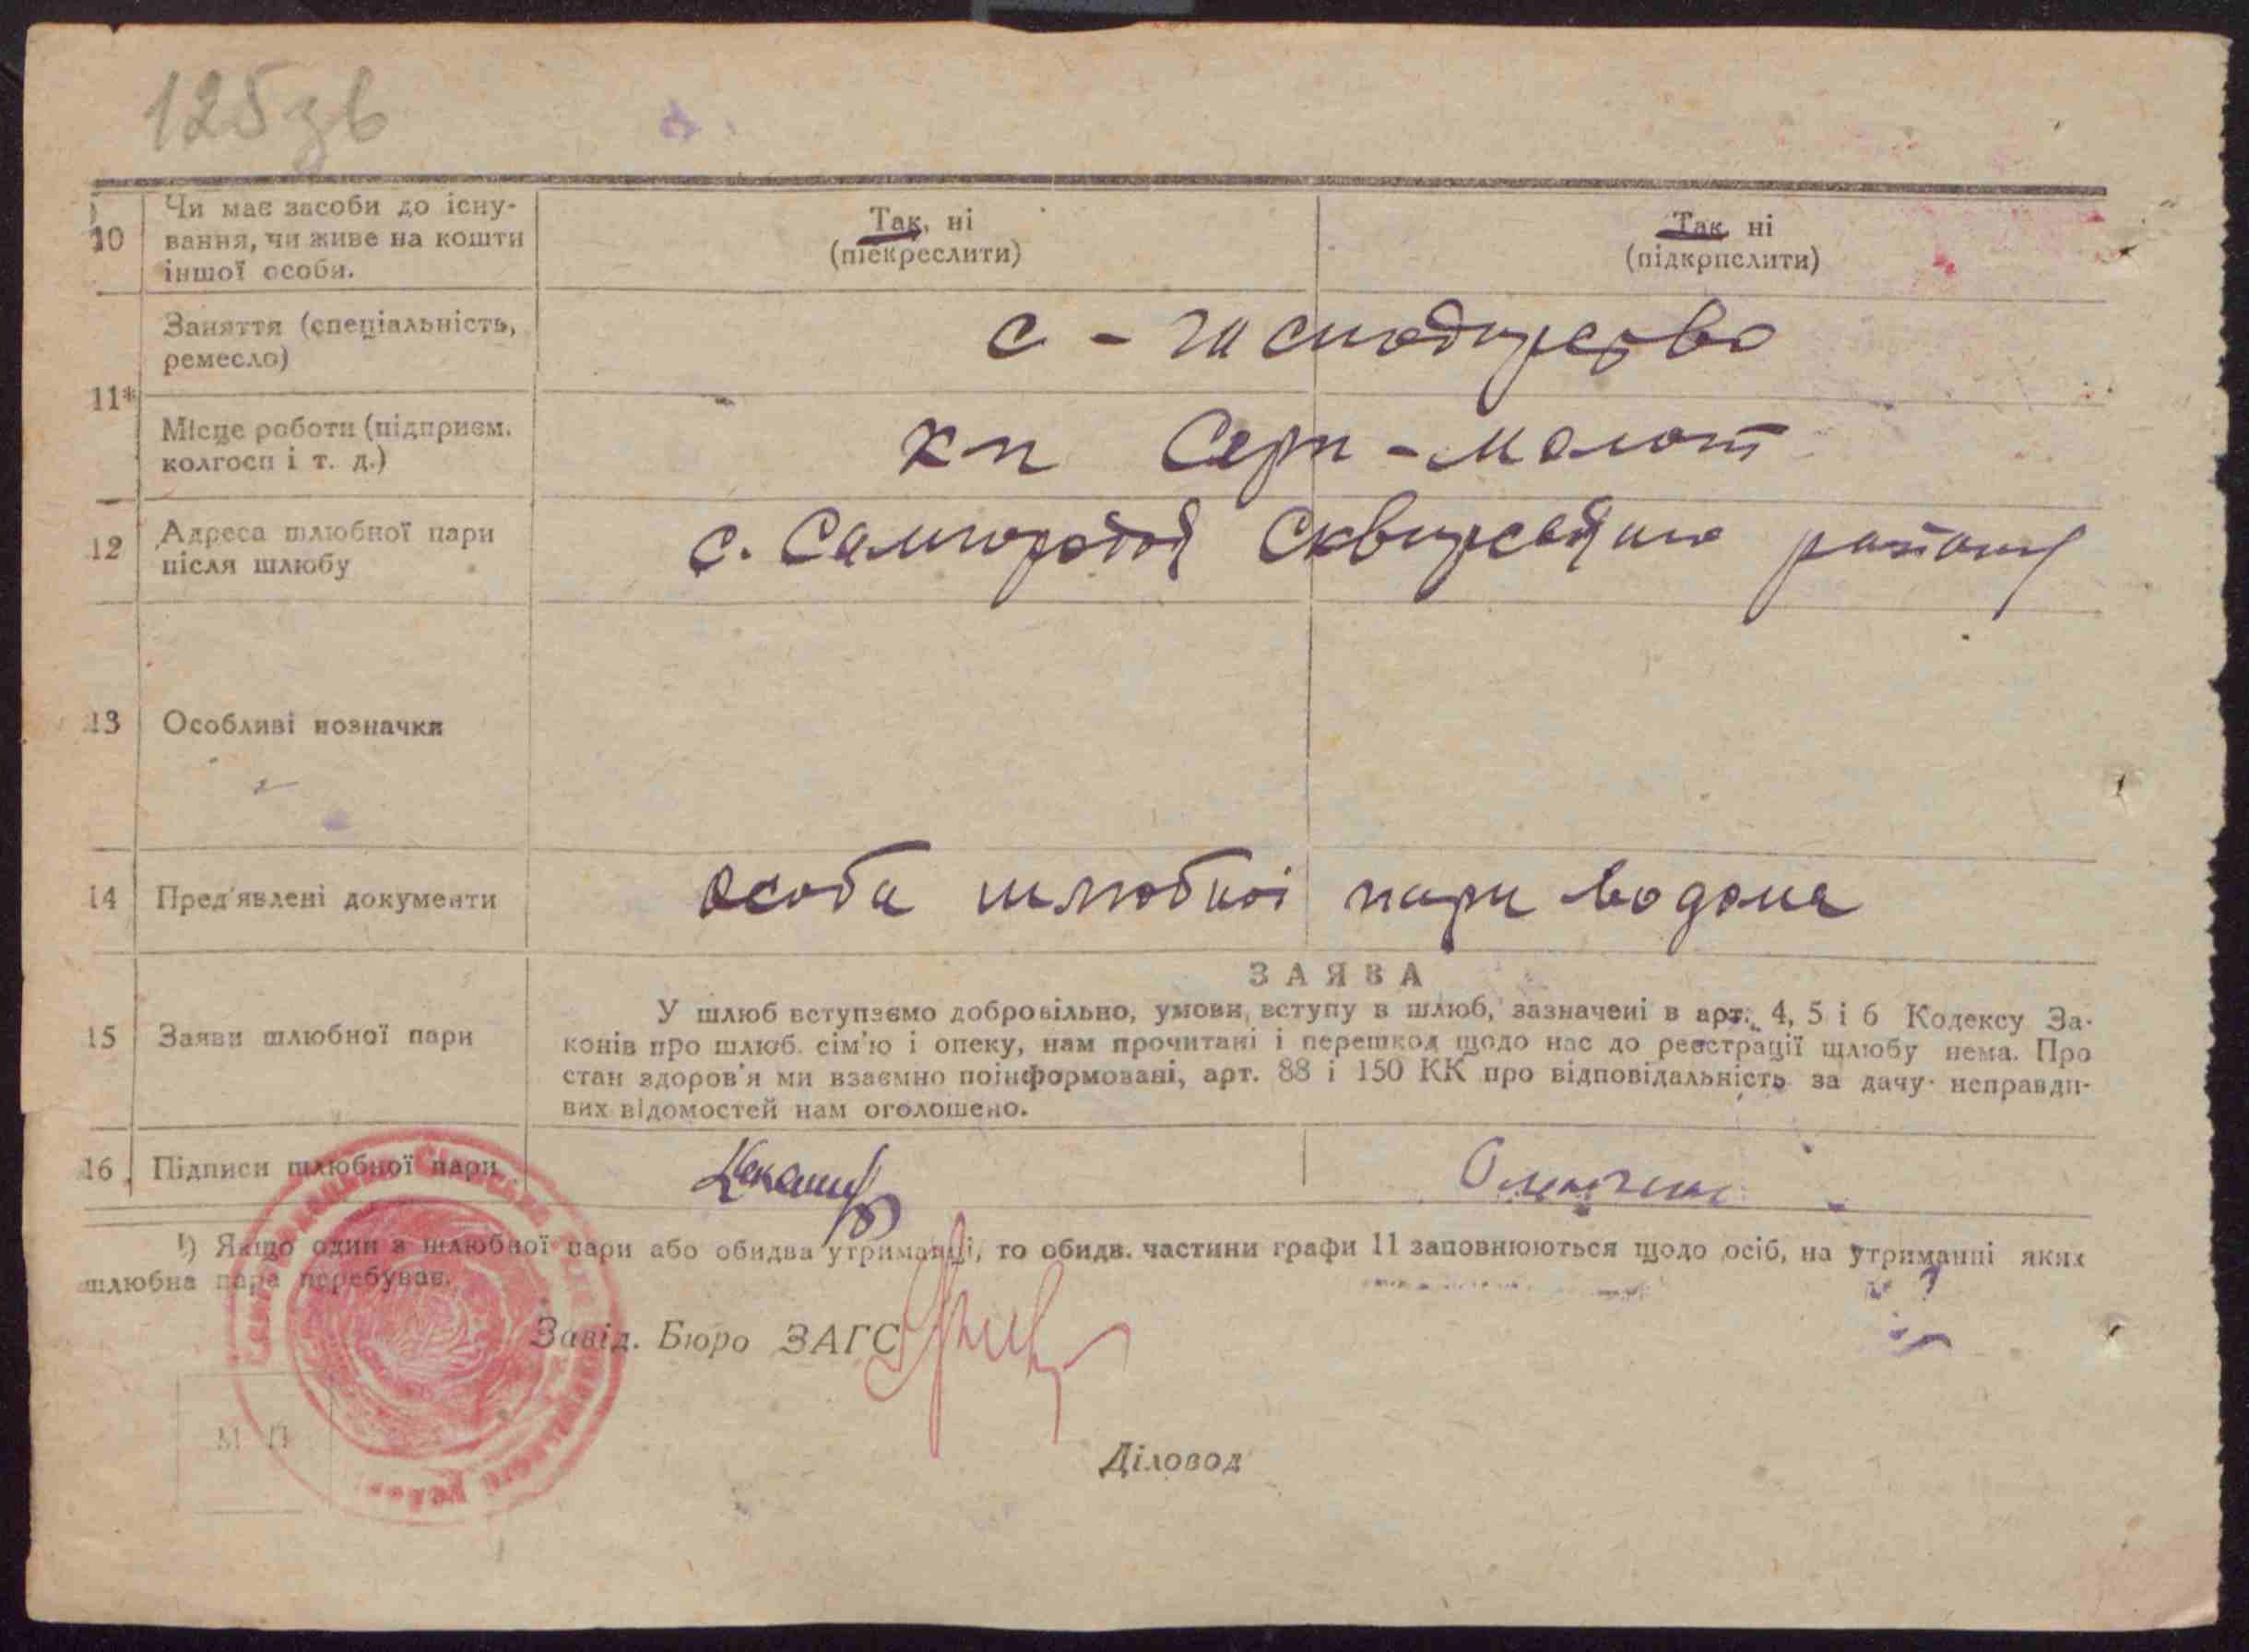 125 зв
10 Чи має засоби до існу-
вання, чи живе на кошти
іншої особи.
Так, ні
(піекреслити)
Так, ні
(підкрпслити)
11*
Заняття (спеціальність,
ремесло)
с - господарство
Місце роботи (підприєм.
колгосп і т. д.)
кп Серп - молот
12 Адреса шлюбної пари
після шлюбу
с. Самгородок Сквирського району
13 Особливі позначки
14 Пред'явлені документи
особа шлюбноі пари відома
15 Заяви шлюбної пари
ЗАЯВА
У шлюб вступаємо добровільно, умови, вступу в шлюб, зазначені в арт. 4, 5 і 6 Кодексу За-
конів про шлюб. сім'ю і опеку, нам прочитані і перешкод щодо нас до реєстрації шлюбу нема. Про
стан здоров'я ми взаємно поінформовані, арт. 88 і 150 КК про відповідальність за дачу неправди-
вих відомостей нам оголошено.
16 Підписи шлюбної пари
¹) Якщо один з шлюбної пари або обидва утриманці, то обидв. частини графи 11 заповнюються щодо осіб, на утриманні яких
шлюбна пара перебуває.
Завід. Бюро ЗАГС
М П
Діловод